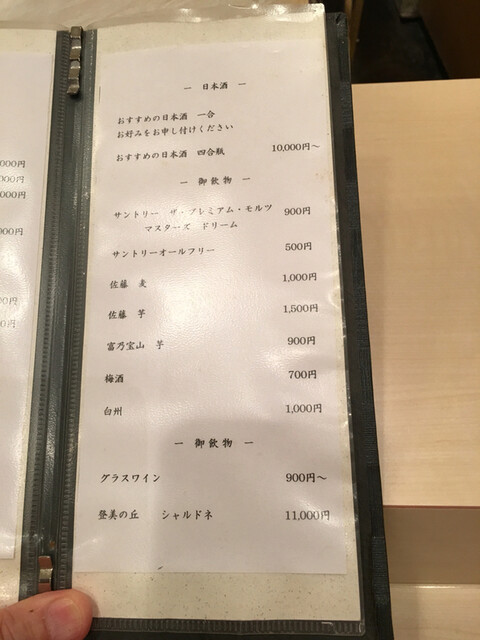 000円
000円
000円
000円
00円
0円
― 日本酒 ―
おすすめの日本酒 一合
お好みをお申し付けください
おすすめの日本酒 四合瓶 10,000円～
― 御飲物 ―
サントリー ザ・プレミアム・モルツ 900円
マスターズ ドリーム
サントリーオールフリー 500円
佐藤 麦 1,000円
佐藤 芋 1,500円
富乃宝山 芋 900円
梅酒 700円
白州 1,000円
― 御飲物 ―
グラスワイン 900円～
登美の丘 シャルドネ 11,000円